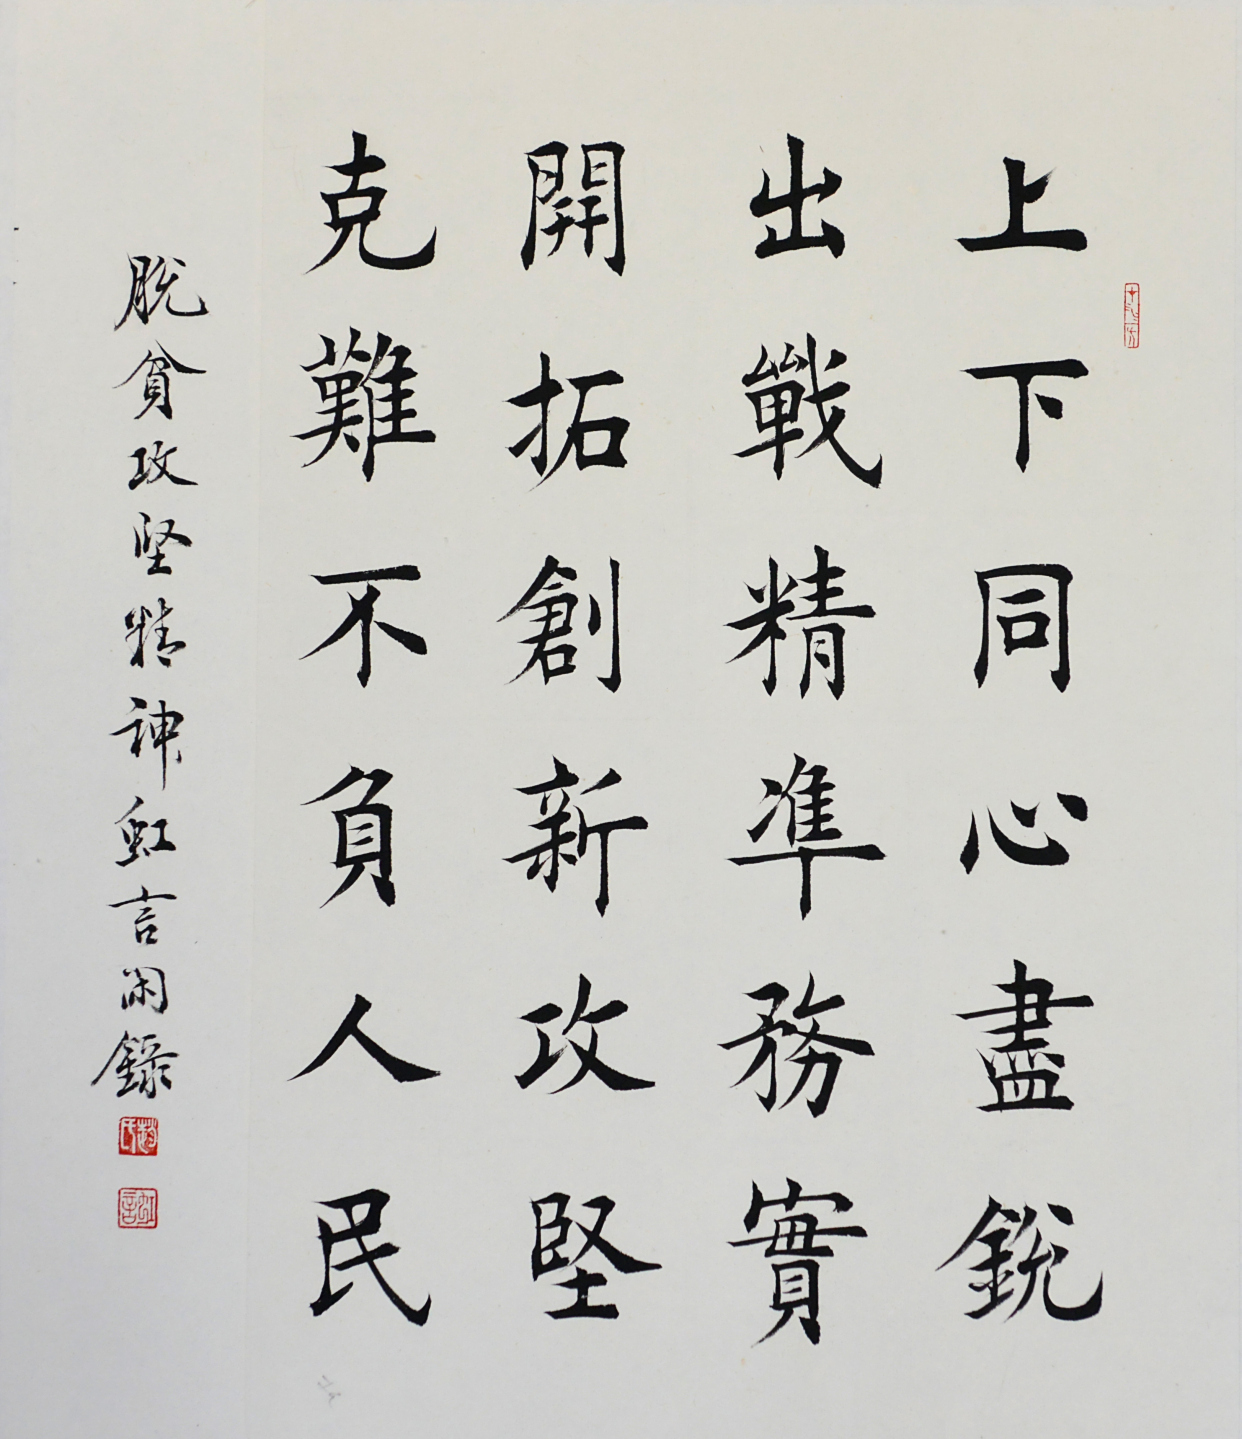 上下同心盡銳
出戰精凖務實
開拓創新攻堅
克難不負人民
脫貧攻堅精神虹言閑錄